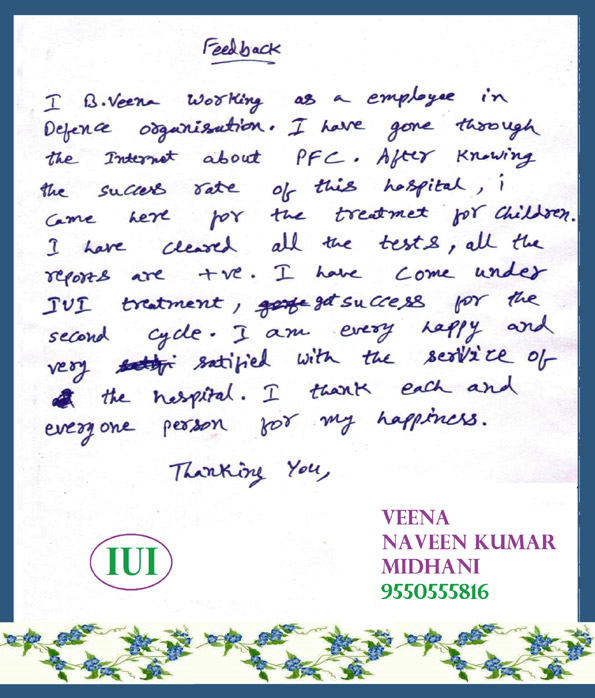 Feedback
I B.Veena working as a employee in
Defence organisation. I have gone through
the Internet about PFC. After knowing
the success rate of this hospital, i
came here for the treatmet for children.
I have cleared all the tests, all the
reports are +ve. I have come under
IUI treatment, got success for the
second cycle. I am every happy and
very satified with the service of
the hospital. I thank each and
everyone person for my happiness.
Thanking You,
VEENA
NAVEEN KUMAR
MIDHANI
9550555816
IUI